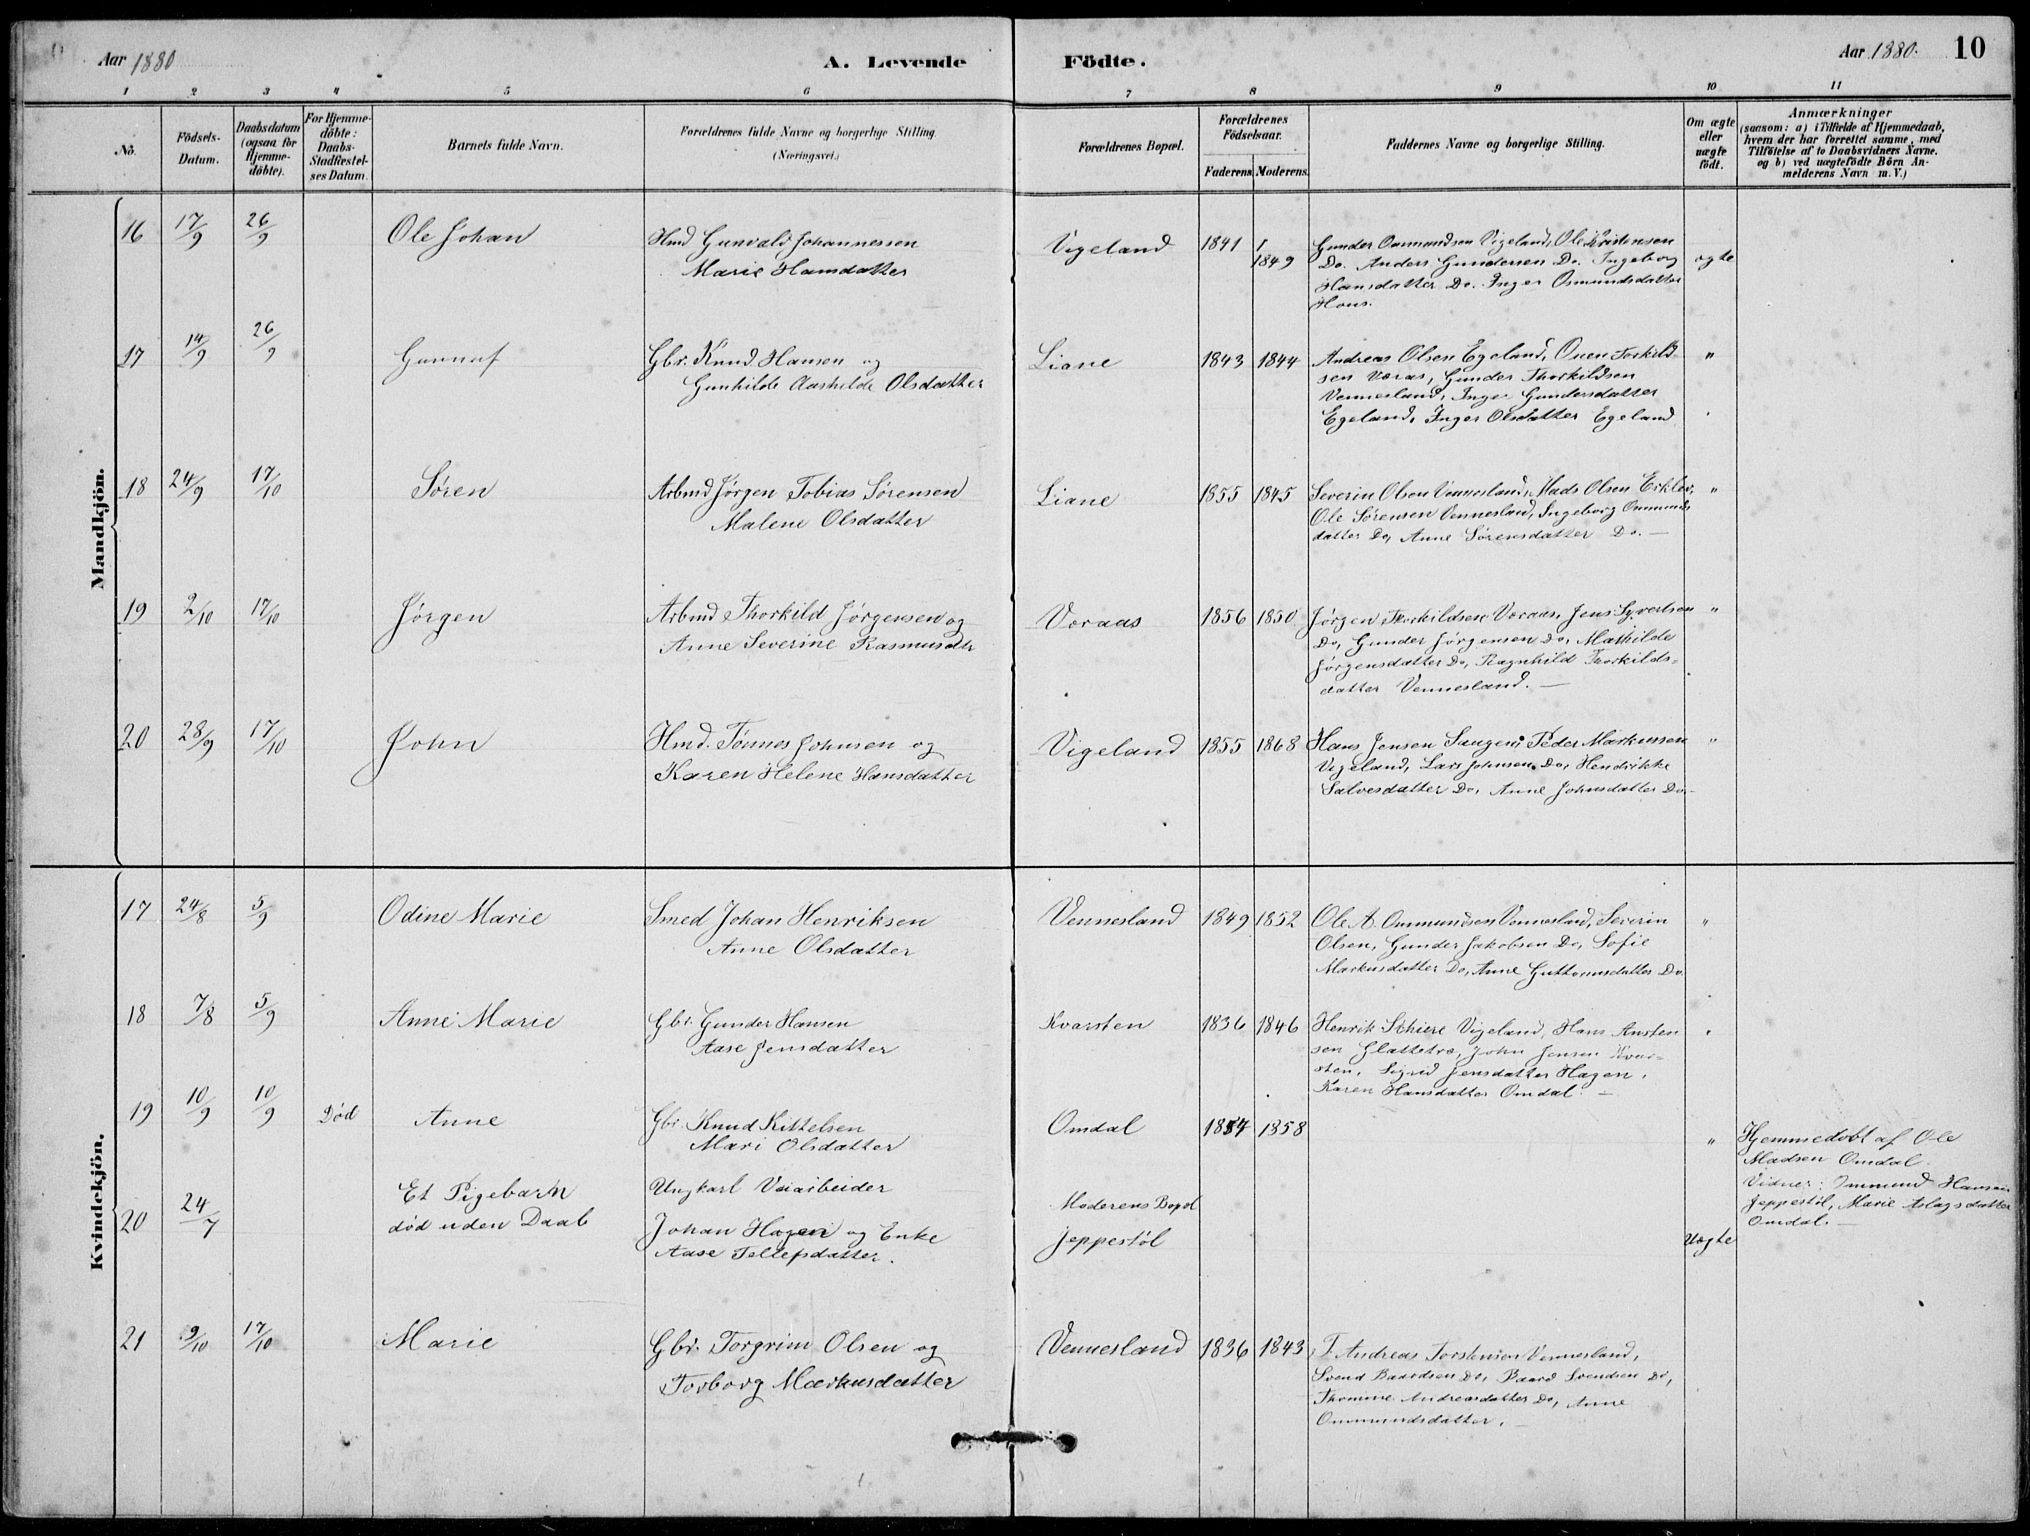 Aar 1880
A. Levende Födte.
Aar 1880. 10
1 2 3 4 5 6 7 8 9 10 11
No.
Födsels-Datum.
Daabsdatum (ogsaa for Hjemme-döbte).
For Hjemme-döbte: Daabs-Stadfæstel-ses Datum.
Barnets fulde Navn.
Forældrenes fulde Navne og borgerlige Stilling. (Næringsvei.)
Forældrenes Bopæl.
Forældrenes Födselsaar.
Faderens Moderens.
Faddernes Navne og borgerlige Stilling.
Om ægte eller uægte födt.
Anmærkninger
(saasom: a) i Tilfælde af Hjemmedaab,
hvem der har forrettet samme, med
Tilföielse af to Daabsvidners Navne.
og b) ved uægtefödte Börn An-
melderens Navn m. V.)
Mandkjön.
16 17/9 26/9 Ole Johan
Hmd Gunvald Johannessen
Marie Hansdatter
Vigeland 1841 1849
Gunder Osmundsen Vigeland, Ole Kristensen
Do. Anders Gundersen Do. Ingeborg
Hansdatter Do. Inger Osmundsdatter
Hous.
ægte
17 14/9 26/9 Gunnuf
Gbr. Knud Hansen og
Gunhilde Aashilde Olsdatter
Liane 1843 1844
Andreas Olsen Egeland, Ouen Torkild
sen Voraas, Gunder Thorkildsen
Vennesland, Inger Gundersdatter
Egeland, Inger Olsdatter Egeland
"
18 24/9 17/10 Søren
Arbmd Jørgen Tobias Sørensen
Malene Olsdatter
Liane 1855 1845
Severin Olsen Vennesland, Mads Olsen Erklev,
Ole Sørensen Vennesland, Ingeborg Ommunds
datter Do, Anne Sørensdatter Do. —
"
19 2/10 17/10 Jørgen
Arbmd Thorkild Jørgensen og
Anne Severine Rasmusdtr
Voraas 1856 1850
Jørgen Thorkildsen Voraas, Jens Syvertsen
Do, Gunder Jørgensen Do, Mathilde
Jørgensdatter Do, Ragnhild Thorkilds=
datter Vennesland. —
"
20 28/9 17/10 John
Hmd. Tønnes Johnsen og
Karen Helene Hansdatter
Vigeland 1855 1868
Hans Jensen Saugen, Peder Markussen
Vigeland, Lars Johnsen Do, Hendrikke
Salvesdatter Do, Anne Johnsdatter Do.
"
Kvindekjön.
17 24/8 5/9 Odine Marie
Smed Johan Henriksen
Anne Olsdatter
Vennesland 1849 1852
Ole A. Ommundsen Vennesland, Severin
Olsen, Gunder Jakobsen Do, Sofie
Markusdatter Do, Anne Guttormsdatter Do.
"
18 7/8 5/9 Anne Marie
Gbr. Gunder Hansen
Aase Jensdatter
Kvarsten 1836 1846
Henrik Vigeland, Hans Ansten
sen Flattetræ, John Jensen Kvar=
sten, Sigrid Jensdatter Hagen,
Karen Hansdatter Omdal. —
"
19 10/9 10/9 Død Anne
Gbr. Knud Kittelsen
Mari Olsdatter
Omdal 1854 1858
"
Hjemmedøbt af Ole
Madsen Omdal.
Vidner: Ommund Hansen
Jeppestøl, Marie Aslagsdatter
Omdal. —
20 24/7 Et Pigebarn
død uden Daab
Ungkarl Veiarbeider
Johan Hagen og Enke
Aase Tellefsdatter.
Moderens Bopæl
Jeppestøl
Uægte
21 9/10 17/10 Marie
Gbr. Torgrim Olsen og
Torborg Markusdatter
Vennesland 1836 1843
T. Andreas Torstensen Vennesland,
Svend Baardsen Do, Baard Svendsen Do,
Thomine Andreasdatter Do, Anne
Ommundsdatter. —